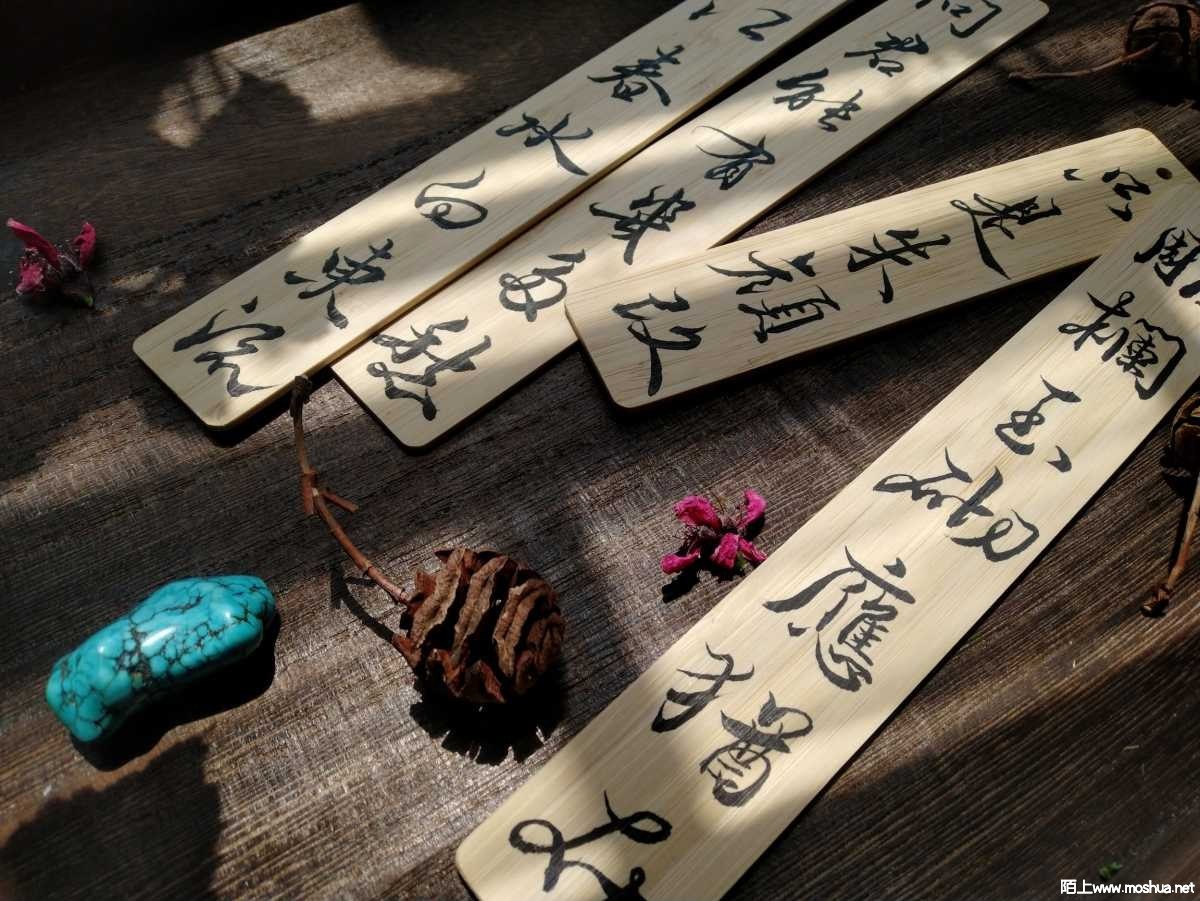 雕欄玉砌應猶在
只是朱顏改
問君能有幾多愁
江春水向東流
陌上www.moshua.net